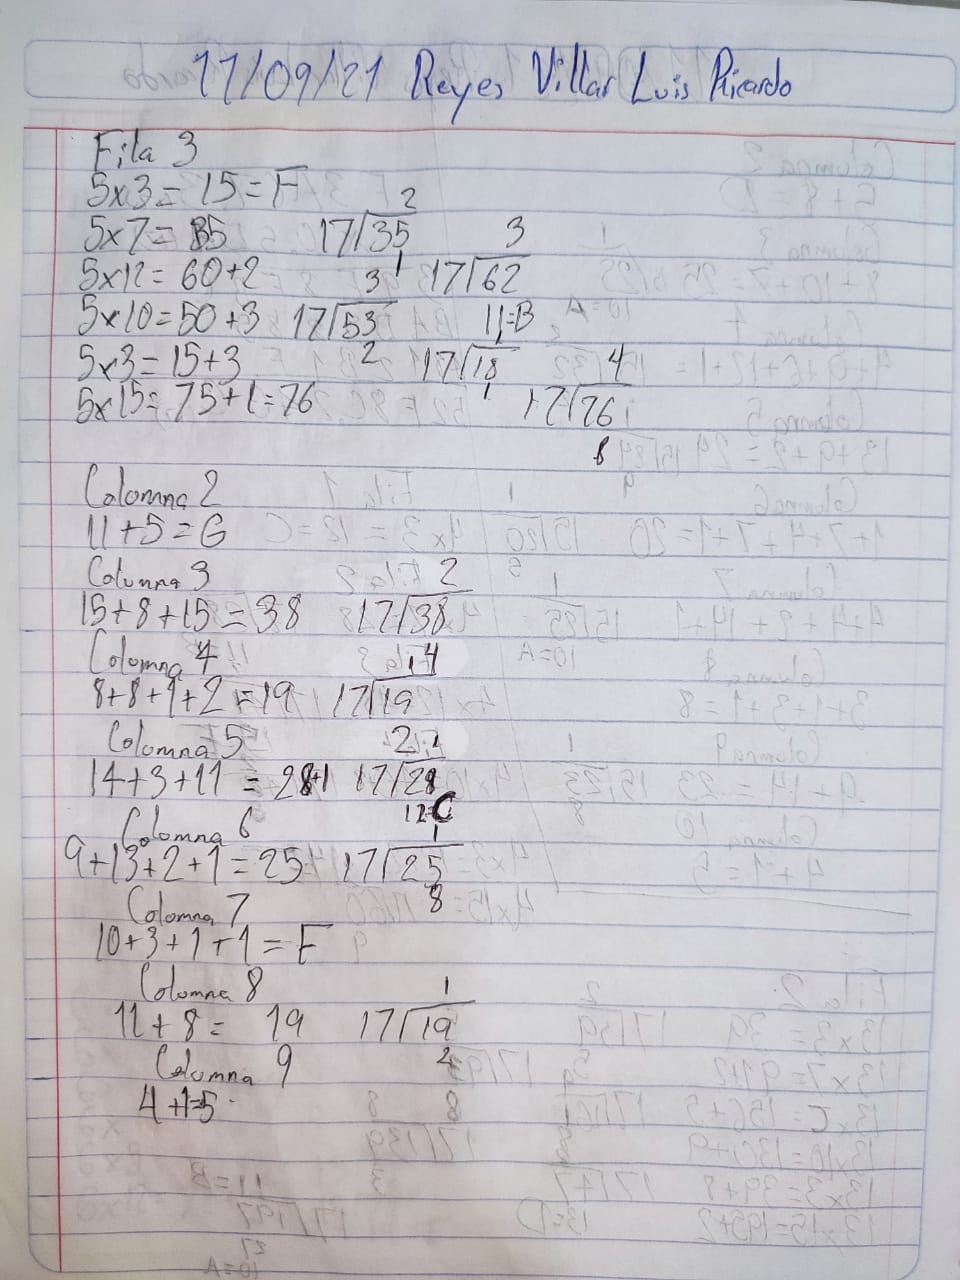 17/09/21 Reyes Villar Luis Ricardo
Fila 3
5x3= 15=F
2
5x7= 35 17/35
3
5x12= 60+2 1 17/62
3
5x10=50+3 17/53 11=B
2
5x3=15+3 17/18 4
1
5x15= 75+1=76 17/76
8
Colomna 2
11+5=G
Columna 3 2
15+8+15=38 17/38
Colomna 4 1 4
8+8+1+2=19 17/19
Colomna 5 2 1
14+3+11 = 28+1 17/28
12=C
Colomna 6 1
9+13+2+1=25 17/25
8
Colomna 7
10+3+1+1=F
Colomna 8 1
11+8= 19 17/19
2
Columna 9
4+1=5